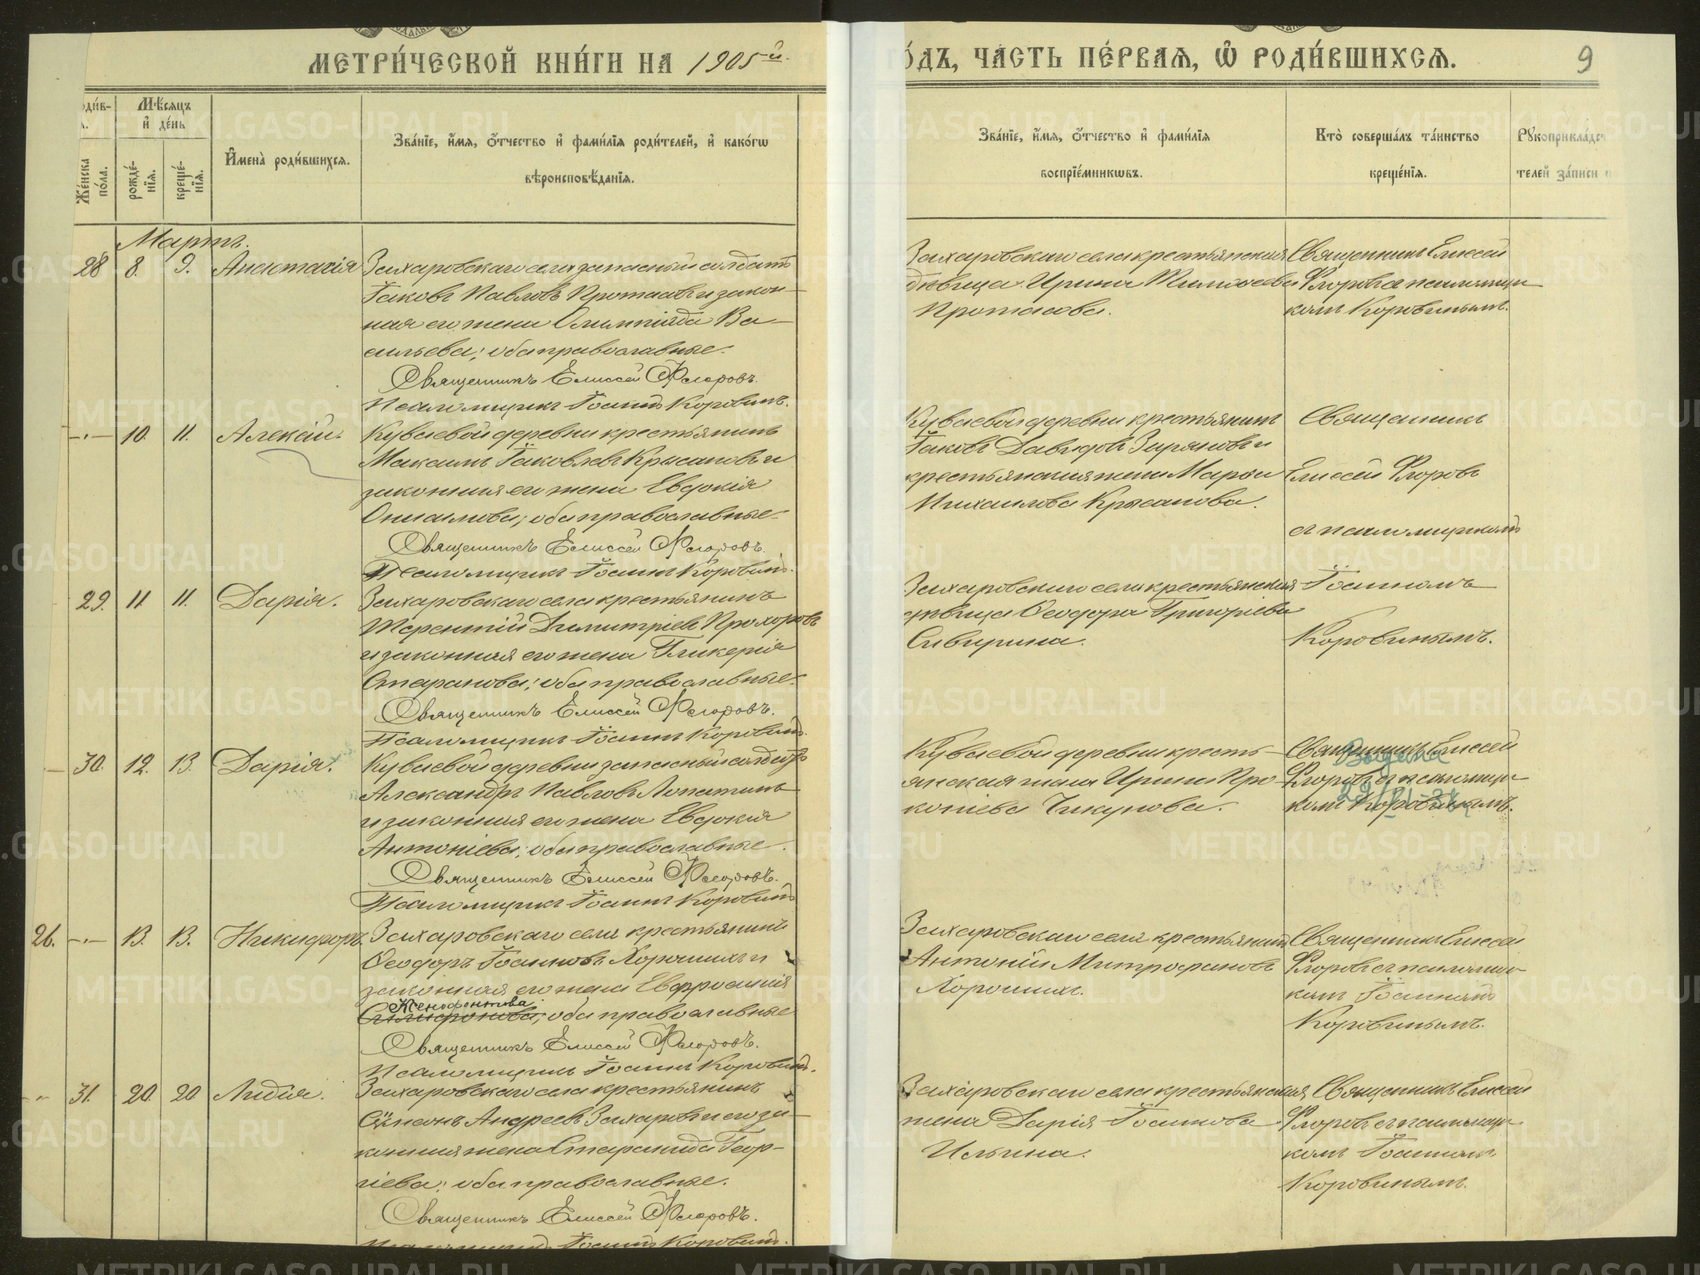 МЕТРИ́ЧЕСКОЙ КНИ́ГИ НА 1905й
ГО́ДЪ, ЧА́СТЬ ПЕ́РВАЯ, Ѽ РОДИ́ВШИХСЯ.
9
Мѣ́сяцъ
и҆ де́нь
Же́нска по́ла.
рожде́нїя.
креще́нїя.
И҆мена̀ роди́вшихся.
Зва́нїе, и҆́мя, о҆́тчество и҆ фами́лїя роди́телей, и҆ како́гѡ
вѣроисповѣ́данїя.
Зва́нїе, и҆́мя, о҆́тчество и҆ фами́лїя
воспрїе́мникѡвъ.
Кто̀ соверша́лъ та́инство
креще́нїя.
Рꙋкоприкла́дст
телей за́писи
Мартъ.
28 8. 9. Анастасія
Захаровскаго села запасный солдатъ
Іаковъ Павловъ Протасовъ и закон-
ная его жена Олимпіада Ва-
сильева; оба православные.
Священникъ Елиссей Флоровъ.
Псаломщикъ Іоаннъ Коровинъ.
Захаровскаго села крестьянская
дѣвица Ирина Тимофеева
Протасова.
Священникъ Елиссей
Флоровъ съ псаломщи-
комъ Коровинымъ.
-"- 10. 11. Алексій.
Куваевой деревни крестьянинъ
Максимъ Іаковлевъ Крысановъ и
законная его жена Евдокія
Онисимова; оба православные.
Священникъ Елиссей Флоровъ.
Псаломщикъ Іоаннъ Коровинъ.
Куваевой деревни крестьянинъ
Іаковъ Давидовъ Зыряновъ и
крестьянская жена Марфа
Михаилова Крысанова.
Священникъ
Елиссей Флоровъ
съ псаломщикомъ
29. 11. 11. Дарія.
Захаровскаго села крестьянинъ
Терентій Димитріевъ Прохоровъ
и законная его жена Гликерія
Стаханова; оба православные.
Священникъ Елиссей Флоровъ.
Псаломщикъ Іоаннъ Коровинъ.
Захаровскаго села крестьянская
дѣвица Феодора Григоріева
Сивирина.
Іоанномъ
Коровинымъ.
30. 12. 13. Дарія.
Куваевой деревни запасный солдатъ
Александръ Павловъ Лопатинъ
и законная его жена Евдокія
Антоніева; оба православные.
Священникъ Елиссей Флоровъ.
Псаломщикъ Іоаннъ Коровинъ
Куваевой деревни кресть-
янская жена Ирина Про-
копіева Чикунова.
Священникъ Елиссей
Флоровъ съ псаломщи-
комъ Коровинымъ.
Выдана
26. -"- 13. 13. Никифоръ.
Захаровскаго села крестьянинъ
Феодоръ Іоанновъ Хорошихъ и
законная его жена Евфросинія
Ксенофонтова
оба православные
Священникъ Елиссей Флоровъ.
Псаломщикъ Іоаннъ Коровинъ.
Захаровскаго села крестьянинъ
Антоній Митрофановъ
Хорошихъ.
Священникъ Елиссей
Флоровъ съ псаломщи-
комъ Іоанномъ
Коровинымъ.
31. 20. 20 Лидія.
Захаровскаго села крестьянинъ
Сѵмеонъ Андреевъ Захаровъ и его за-
конная жена Стаханида Геор-
гіева; оба православные.
Священникъ Елиссей Флоровъ.
Псаломщикъ Іоаннъ Коровинъ.
Захаровскаго села крестьянская
жена Дарія Іоаннова
Ильина.
Священникъ Елиссей
Флоровъ съ псаломщи-
комъ Іоанномъ
Коровинымъ.
METRIKI.GASO-URAL.RU